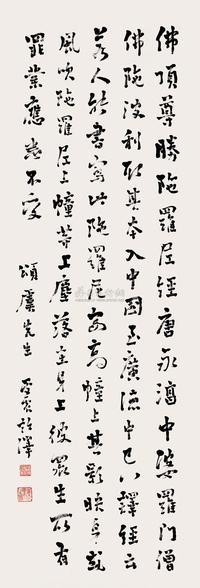 佛頂尊勝陀羅尼經唐永淳中婆羅門僧
佛陀波利取其本入中國至廣流中已八譯經云
若人能書寫此陀羅尼安高幢上其影映身或
風吹陀羅尼上幢等上塵落在身上彼眾生所有
罪業應悉不受
頌虞先生